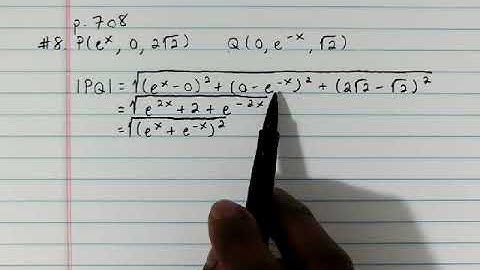 p. 708
#8. P(eˣ, 0, 2√2) Q(0, e⁻ˣ, √2)
|PQ| = √((eˣ - 0)² + (0 - e⁻ˣ)² + (2√2 - √2)²)
= √(e²ˣ + 2 + e⁻²ˣ)
= √((eˣ + e⁻ˣ)²)